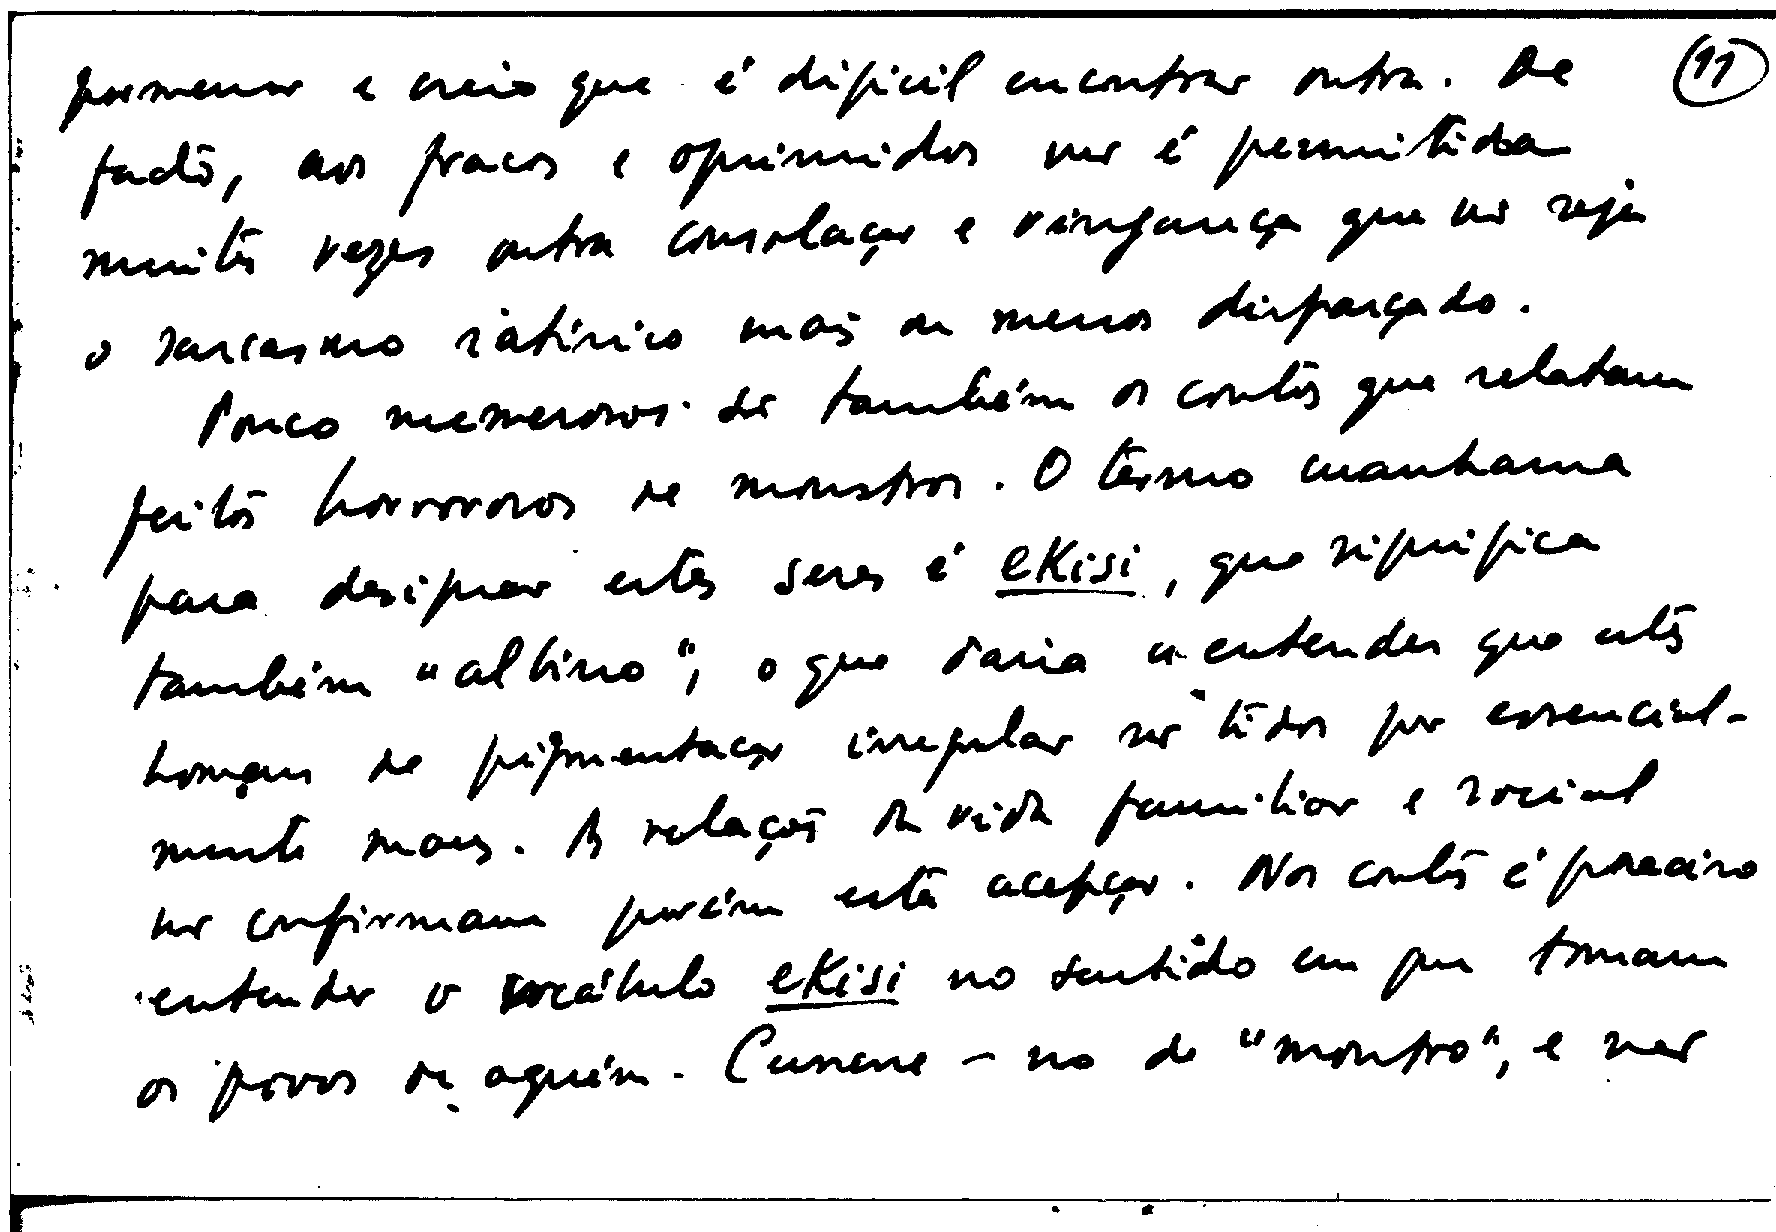 pormenor e creio que é difícil encontrar outra. De (11)
facto, aos fracos e oprimidos não é permitida
muitas vezes outra consolação e vingança que não seja
o sarcasmo satírico mais ou menos disfarçado.
Pouco numerosos são também os contos que relatam
feitos horrorosos de monstros. O termo cuanhama
para designar estes seres é ekisi, que significa
também "albino", o que daria a entender que estes
homens de pigmentação irregular são tidos por essencial-
mente maus. As relações da vida familiar e social
não confirmam porém esta acepção. Nos contos é preciso
entender o vocábulo ekisi no sentido em que tomam
os povos de aquém-Cunene – no de "monstro", e não